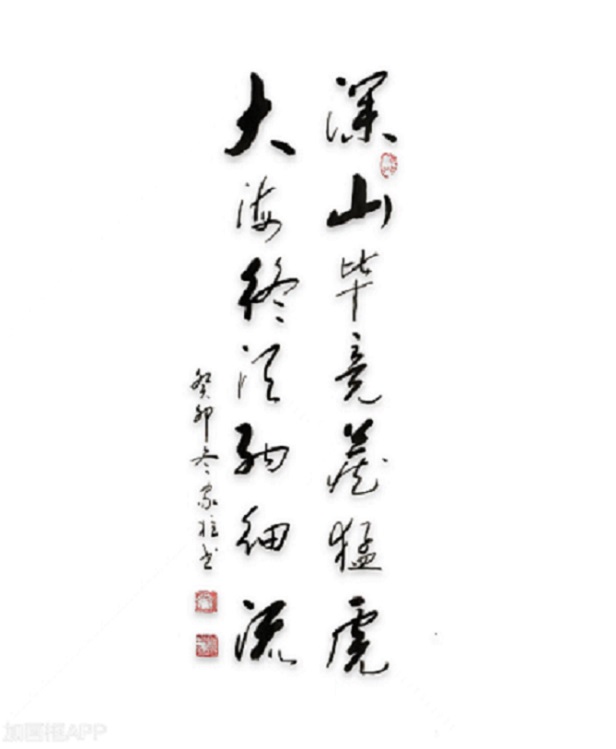 深山毕竟藏猛虎
大海终须纳细流
癸卯冬家柱书
加画框APP